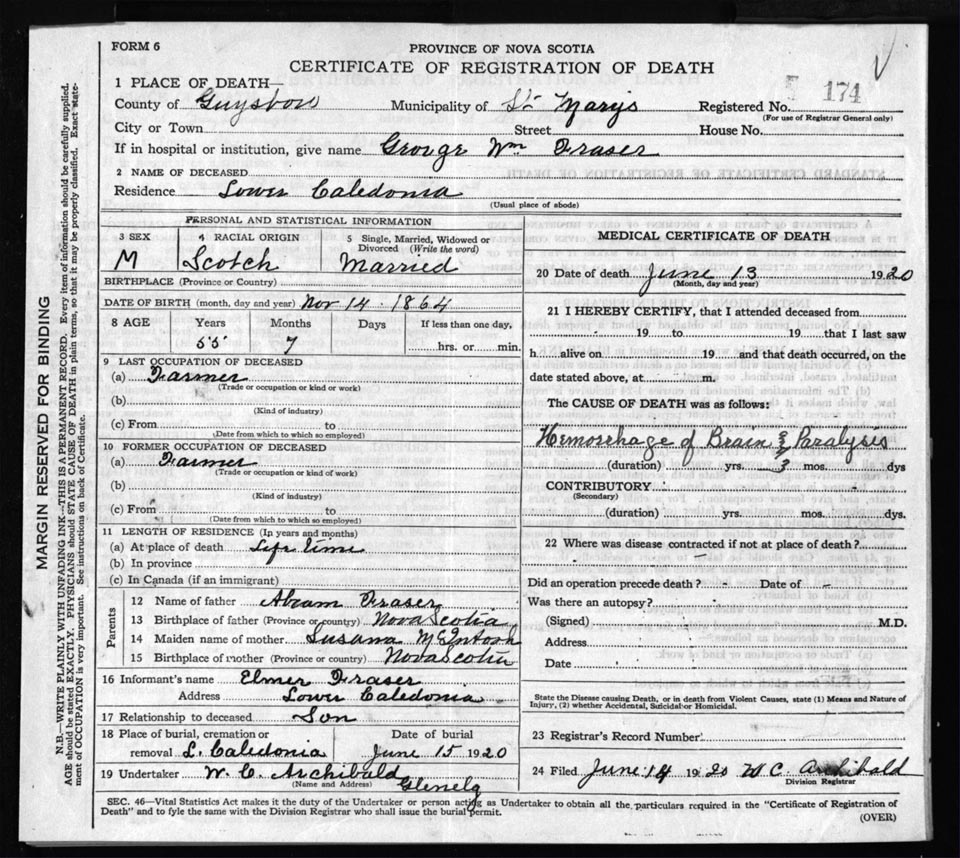 FORM 6
PROVINCE OF NOVA SCOTIA
CERTIFICATE OF REGISTRATION OF DEATH
1 PLACE OF DEATH—
County of Guysboro Municipality of St Mary's Registered No. 174
(For use of Registrar General only)
City or Town Street House No.
If in hospital or institution, give name George Wm Fraser
2 NAME OF DECEASED
Residence Lower Caledonia
(Usual place of abode)
PERSONAL AND STATISTICAL INFORMATION
3 SEX
M
4 RACIAL ORIGIN
Scotch
5 Single, Married, Widowed or
Divorced (Write the word)
Married
BIRTHPLACE (Province or Country)
DATE OF BIRTH (month, day and year) Nov 14 - 1864
8 AGE Years Months Days If less than one day,
55 7 hrs. or min.
9 LAST OCCUPATION OF DECEASED
(a) Farmer
(Trade or occupation or kind or work)
(b)
(Kind of industry)
(c) From to
(Date from which to which so employed)
10 FORMER OCCUPATION OF DECEASED
(a) Farmer
(Trade or occupation or kind of work)
(b)
(Kind of industry)
(c) From to
(Date from which to which so employed)
11 LENGTH OF RESIDENCE (In years and months)
(a) At place of death Life time
(b) In province
(c) In Canada (if an immigrant)
Parents
12 Name of father Abram Fraser
13 Birthplace of father (Province or country) Nova Scotia
14 Maiden name of mother Susana McIntosh
15 Birthplace of mother (Province or country) Nova Scotia
16 Informant's name Elmer Fraser
Address Lower Caledonia
17 Relationship to deceased Son
18 Place of burial, cremation or Date of burial
removal L. Caledonia June 15 1920
19 Undertaker W. C. Archibald
(Name and Address) Glenelg
MEDICAL CERTIFICATE OF DEATH
20 Date of death June 13 1920
(Month, day and year)
21 I HEREBY CERTIFY, that I attended deceased from
19 to 19 that I last saw
h alive on 19 and that death occurred, on the
date stated above, at m.
The CAUSE OF DEATH was as follows:
Hemorrhage of Brain & Paralysis
(duration) yrs. 3 mos. dys
CONTRIBUTORY
(Secondary)
(duration) yrs. mos. dys.
22 Where was disease contracted if not at place of death?
Did an operation precede death? - Date of -
Was there an autopsy?
(Signed) M.D.
Address
Date
State the Disease causing Death, or in death from Violent Causes, state (1) Means and Nature of
Injury, (2) whether Accidental, Suicidal or Homicidal.
23 Registrar's Record Number
24 Filed June 14 1920 W C. Archibald
Division Registrar
SEC. 46—Vital Statistics Act makes it the duty of the Undertaker or person acting as Undertaker to obtain all the particulars required in the "Certificate of Registration of
Death" and to fyle the same with the Division Registrar who shall issue the burial permit.
(OVER)
MARGIN RESERVED FOR BINDING
N.B.—WRITE PLAINLY WITH UNFADING INK—THIS IS A PERMANENT RECORD. Every item of information should be carefully supplied.
AGE should be stated EXACTLY. PHYSICIANS should STATE CAUSE OF DEATH in plain terms, so that it may be properly classified. Exact state-
ment of OCCUPATION is very important. See instructions on back of Certificate.